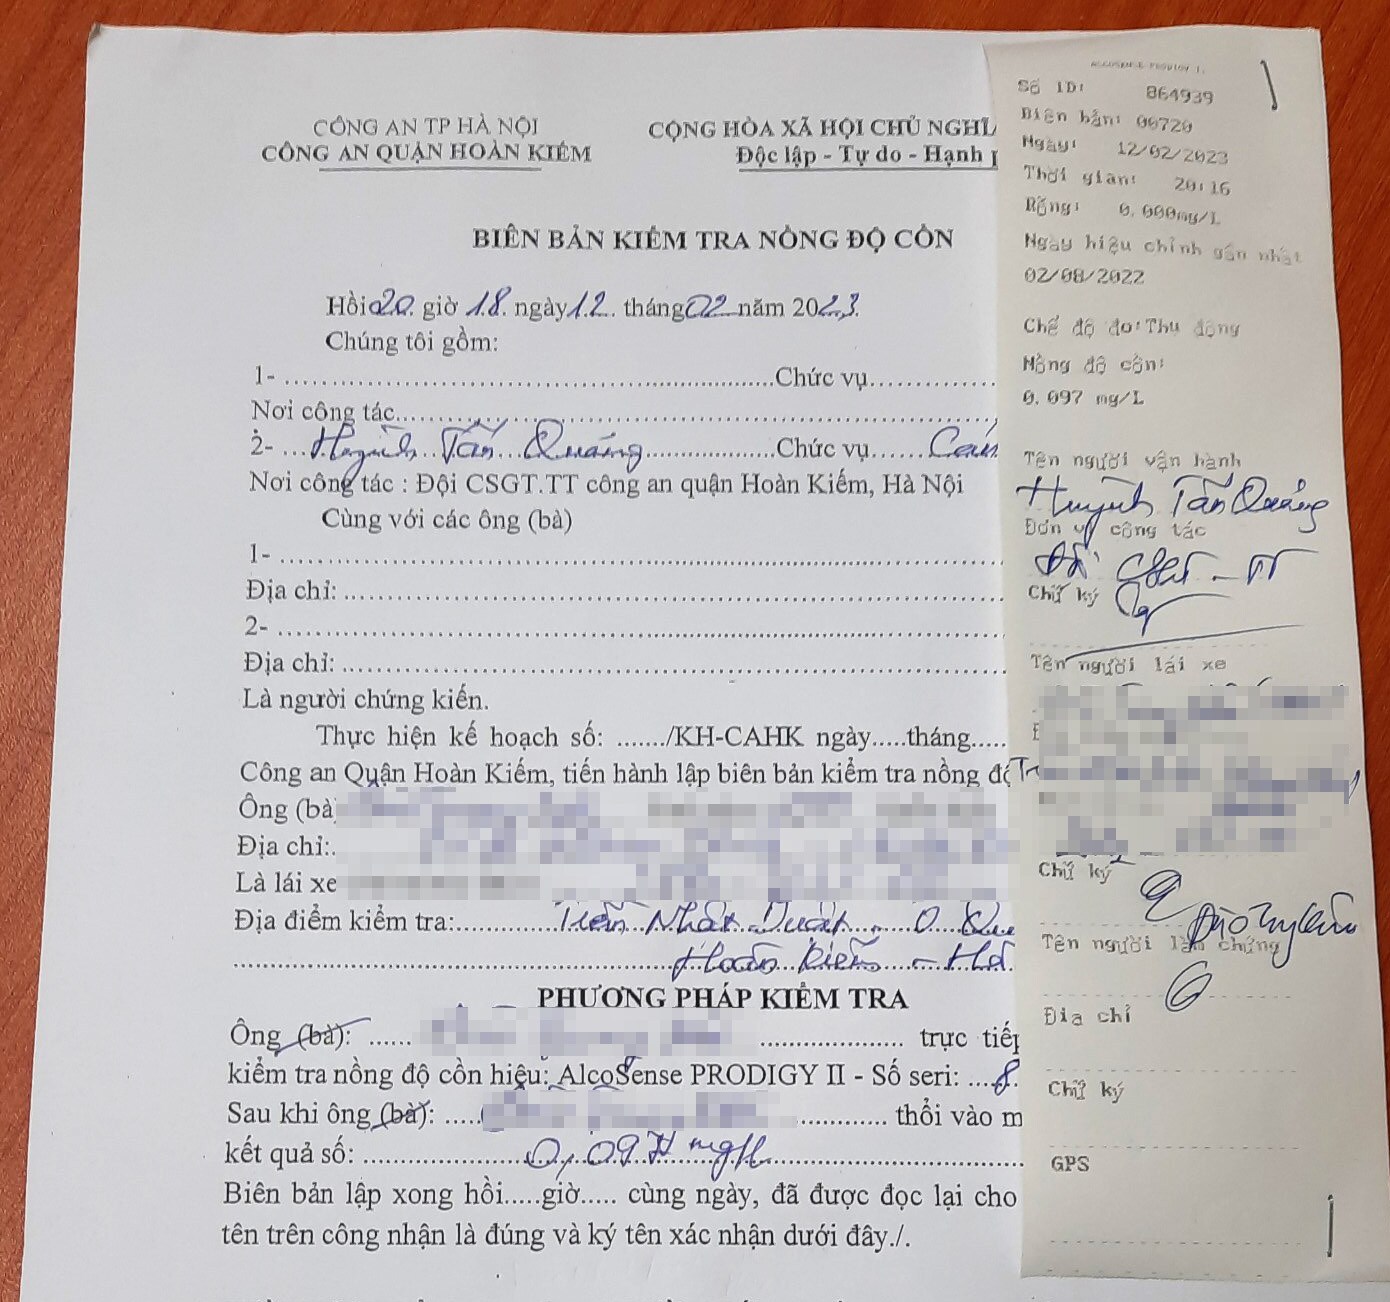 CÔNG AN TP HÀ NỘI
CÔNG AN QUẬN HOÀN KIẾM
CỘNG HÒA XÃ HỘI CHỦ NGHĨA
Độc lập - Tự do - Hạnh p
BIÊN BẢN KIỂM TRA NỒNG ĐỘ CỒN
Hồi 20. giờ 18. ngày 12. tháng 02 năm 2023.
Chúng tôi gồm:
1- ........ Chức vụ........
Nơi công tác........
2- ... Huỳnh Tấn Quảng ........ Chức vụ...... Cán
Nơi công tác : Đội CSGT.TT công an quận Hoàn Kiếm, Hà Nội
Cùng với các ông (bà)
1- ........
Địa chỉ: ........
2- ........
Địa chỉ: ........
Là người chứng kiến.
Thực hiện kế hoạch số: ......./KH-CAHK ngày.....tháng.....
Công an Quận Hoàn Kiếm, tiến hành lập biên bản kiểm tra nồng độ
Ông (bà)
Địa chỉ:.
Là lái xe
Địa điểm kiểm tra:........ Trần Nhật Duật
Hoàn Kiếm - Hà
PHƯƠNG PHÁP KIỂM TRA
Ông (bà): ...... ........ trực tiếp
kiểm tra nồng độ cồn hiệu: AlcoSense PRODIGY II - Số seri: ....8.
Sau khi ông (bà): ..... ........ thổi vào m
kết quả số: ........ 0,097 mg/L
Biên bản lập xong hồi.....giờ..... cùng ngày, đã được đọc lại cho
tên trên công nhận là đúng và ký tên xác nhận dưới đây./.
Số ID: 864939
Biên bản: 00720
Ngày: 12/02/2023
Thời gian: 20:16
Rỗng: 0.000mg/L
Ngày hiệu chỉnh gần nhất
02/08/2022
Chế độ đo:Thụ động
Nồng độ cồn:
0.097 mg/L
Tên người vận hành
Huỳnh Tấn Quảng
Đơn vị công tác
Chữ ký
Tên người lái xe
Chữ ký
Tên người làm chứng
Địa chỉ
Chữ ký
GPS